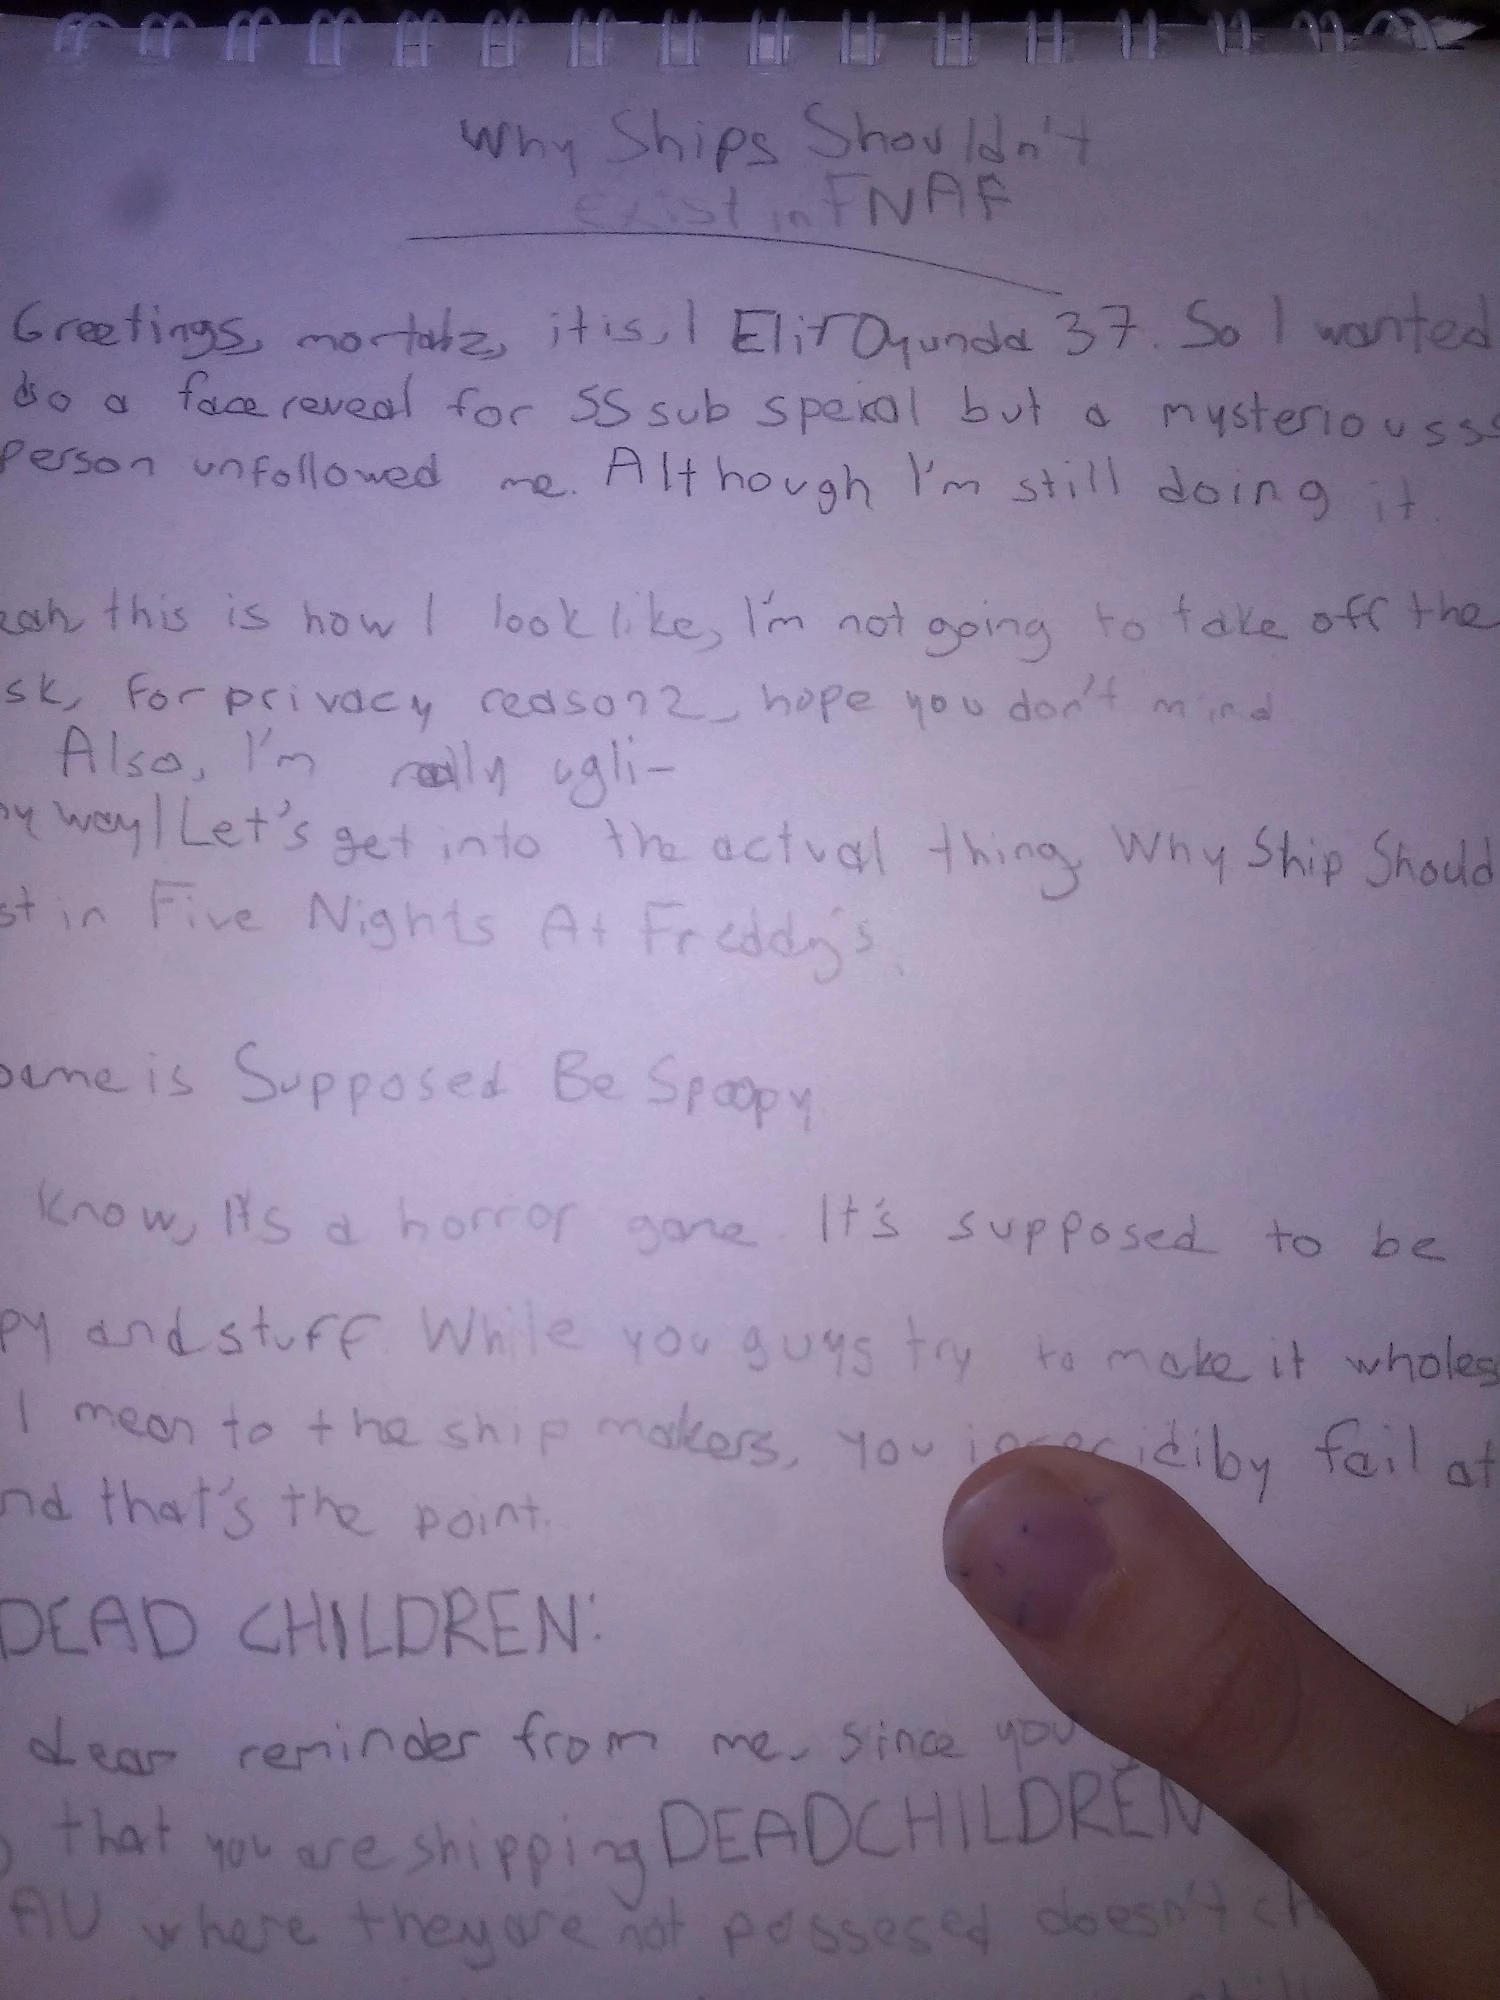 Why Ships Shouldn't
Exist in FNAF
Greetings, mortalz, it is, I ElitOyunda 37. So I wanted
do a face reveal for 55 sub spekal but a mysteriousss
Person unfollowed me. Although I'm still doing it.
eah this is how I look like, I'm not going to take off the
sk, for privacy reason2, hope you don't mind
Also, I'm really ugli-
ny way! Let's get into the actual thing, Why Ship Should
st in Five Nights At Freddy's.
ame is Supposed Be Spoopy
know, It's a horror game. It's supposed to be
py and stuff. While you guys try to make it wholes
I mean to the ship makers, you idiby fail at
nd that's the point.
DEAD CHILDREN:
dear reminder from me. Since you
that you are shipping DEAD CHILDREN
AU where they are not possesed doesn't ch